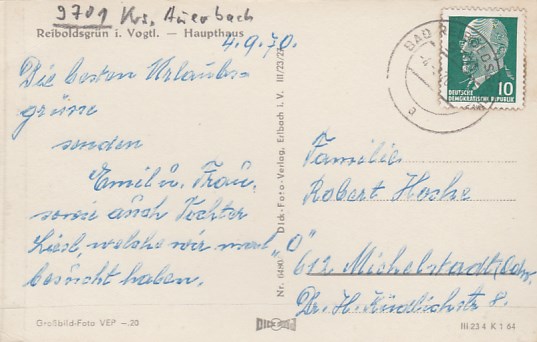 9701 Krs. Auerbach
Reiboldsgrün i. Vogtl. — Haupthaus
4.9.70.
Die besten Urlaubs-
grüße
senden
Emil u. Frau,
sowie auch Tochter
Liesl, welche wir mal
besucht haben.
Großbild-Foto VEP —.20
Nr. 6490 Dick-Foto-Verlag, Erlbach i. V. III/23/28
DICK
BAD R
10
DEUTSCHE
DEMOKRATISCHE REPUBLIK
Familie
Robert Hoske
"O"
612 Michelstadt/Odw.
Dr. H. Kindlichstr 8.
III 23 4 K 1 64